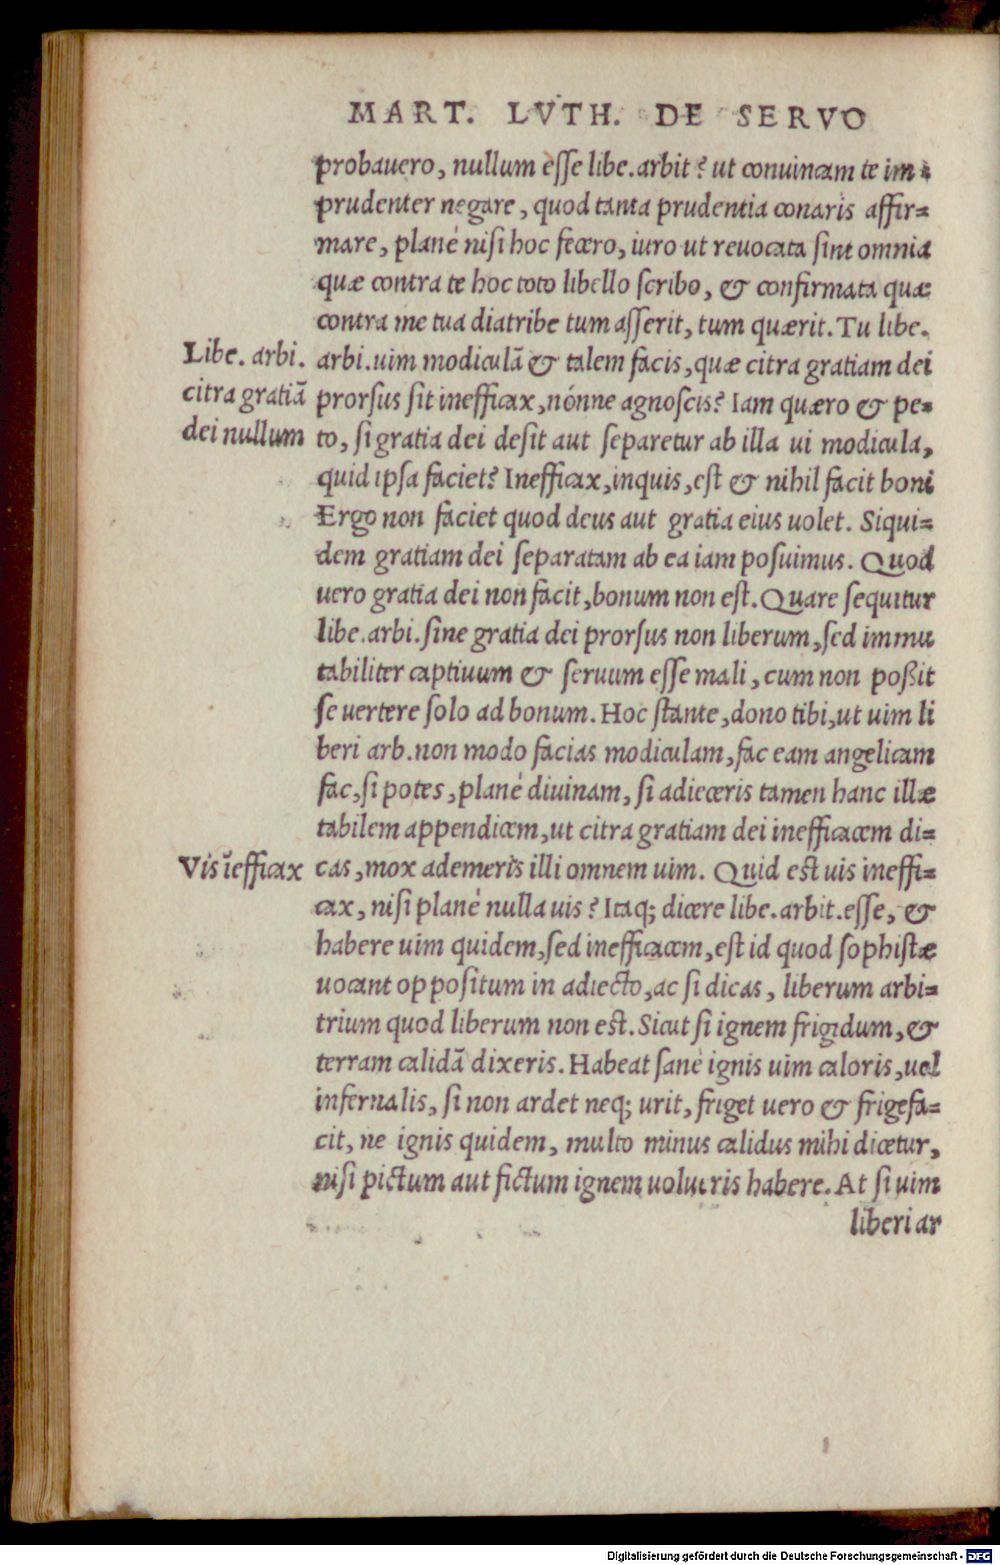 MART. LVTH. DE SERVO
probauero, nullum esse libe.arbit? ut conuincam te im-
prudenter negare, quod tanta prudentia conaris affir=
mare, planè nisi hoc fecero, iuro ut reuocata sint omnia
quæ contra te hoc toto libello scribo, & confirmata quæ
contra me tua diatribe tum asserit, tum quærit. Tu libe.
Libe. arbi.
citra gratiā
dei nullum
arbi.uim modiculā & talem facis, quæ citra gratiam dei
prorsus sit inefficax, nónne agnoscis? Iam quæro & pe=
to, si gratia dei desit aut separetur ab illa ui modicula,
quid ipsa faciet? Inefficax, inquis, est & nihil facit boni
Ergo non faciet quod deus aut gratia eius uolet. Siqui=
dem gratiam dei separatam ab ea iam posuimus. Quod
uero gratia dei non facit, bonum non est. Quare sequitur
libe.arbi.sine gratia dei prorsus non liberum, sed immu
tabiliter captiuum & seruum esse mali, cum non poßit
se uertere solo ad bonum. Hoc stante, dono tibi, ut uim li
beri arb.non modo facias modiculam, fac eam angelicam
fac, si potes, planè diuinam, si adieceris tamen hanc illæ
tabilem appendicem, ut citra gratiam dei inefficacem di=
Vis īefficax
cas, mox ademeris illi omnem uim. Quid est uis ineffi=
cax, nisi planè nulla uis? Itaq; dicere libe.arbit.esse, &
habere uim quidem, sed inefficacem, est id quod sophistæ
uocant oppositum in adiecto, ac si dicas, liberum arbi=
trium quod liberum non est. Sicut si ignem frigidum, &
terram calidā dixeris. Habeat sanè ignis uim caloris, uel
infernalis, si non ardet neq; urit, friget uero & frigefa=
cit, ne ignis quidem, multo minus calidus mihi dicetur,
nisi pictum aut fictum ignem uolueris habere. At si uim
liberi ar
Digitalisierung gefördert durch die Deutsche Forschungsgemeinschaft - DFG